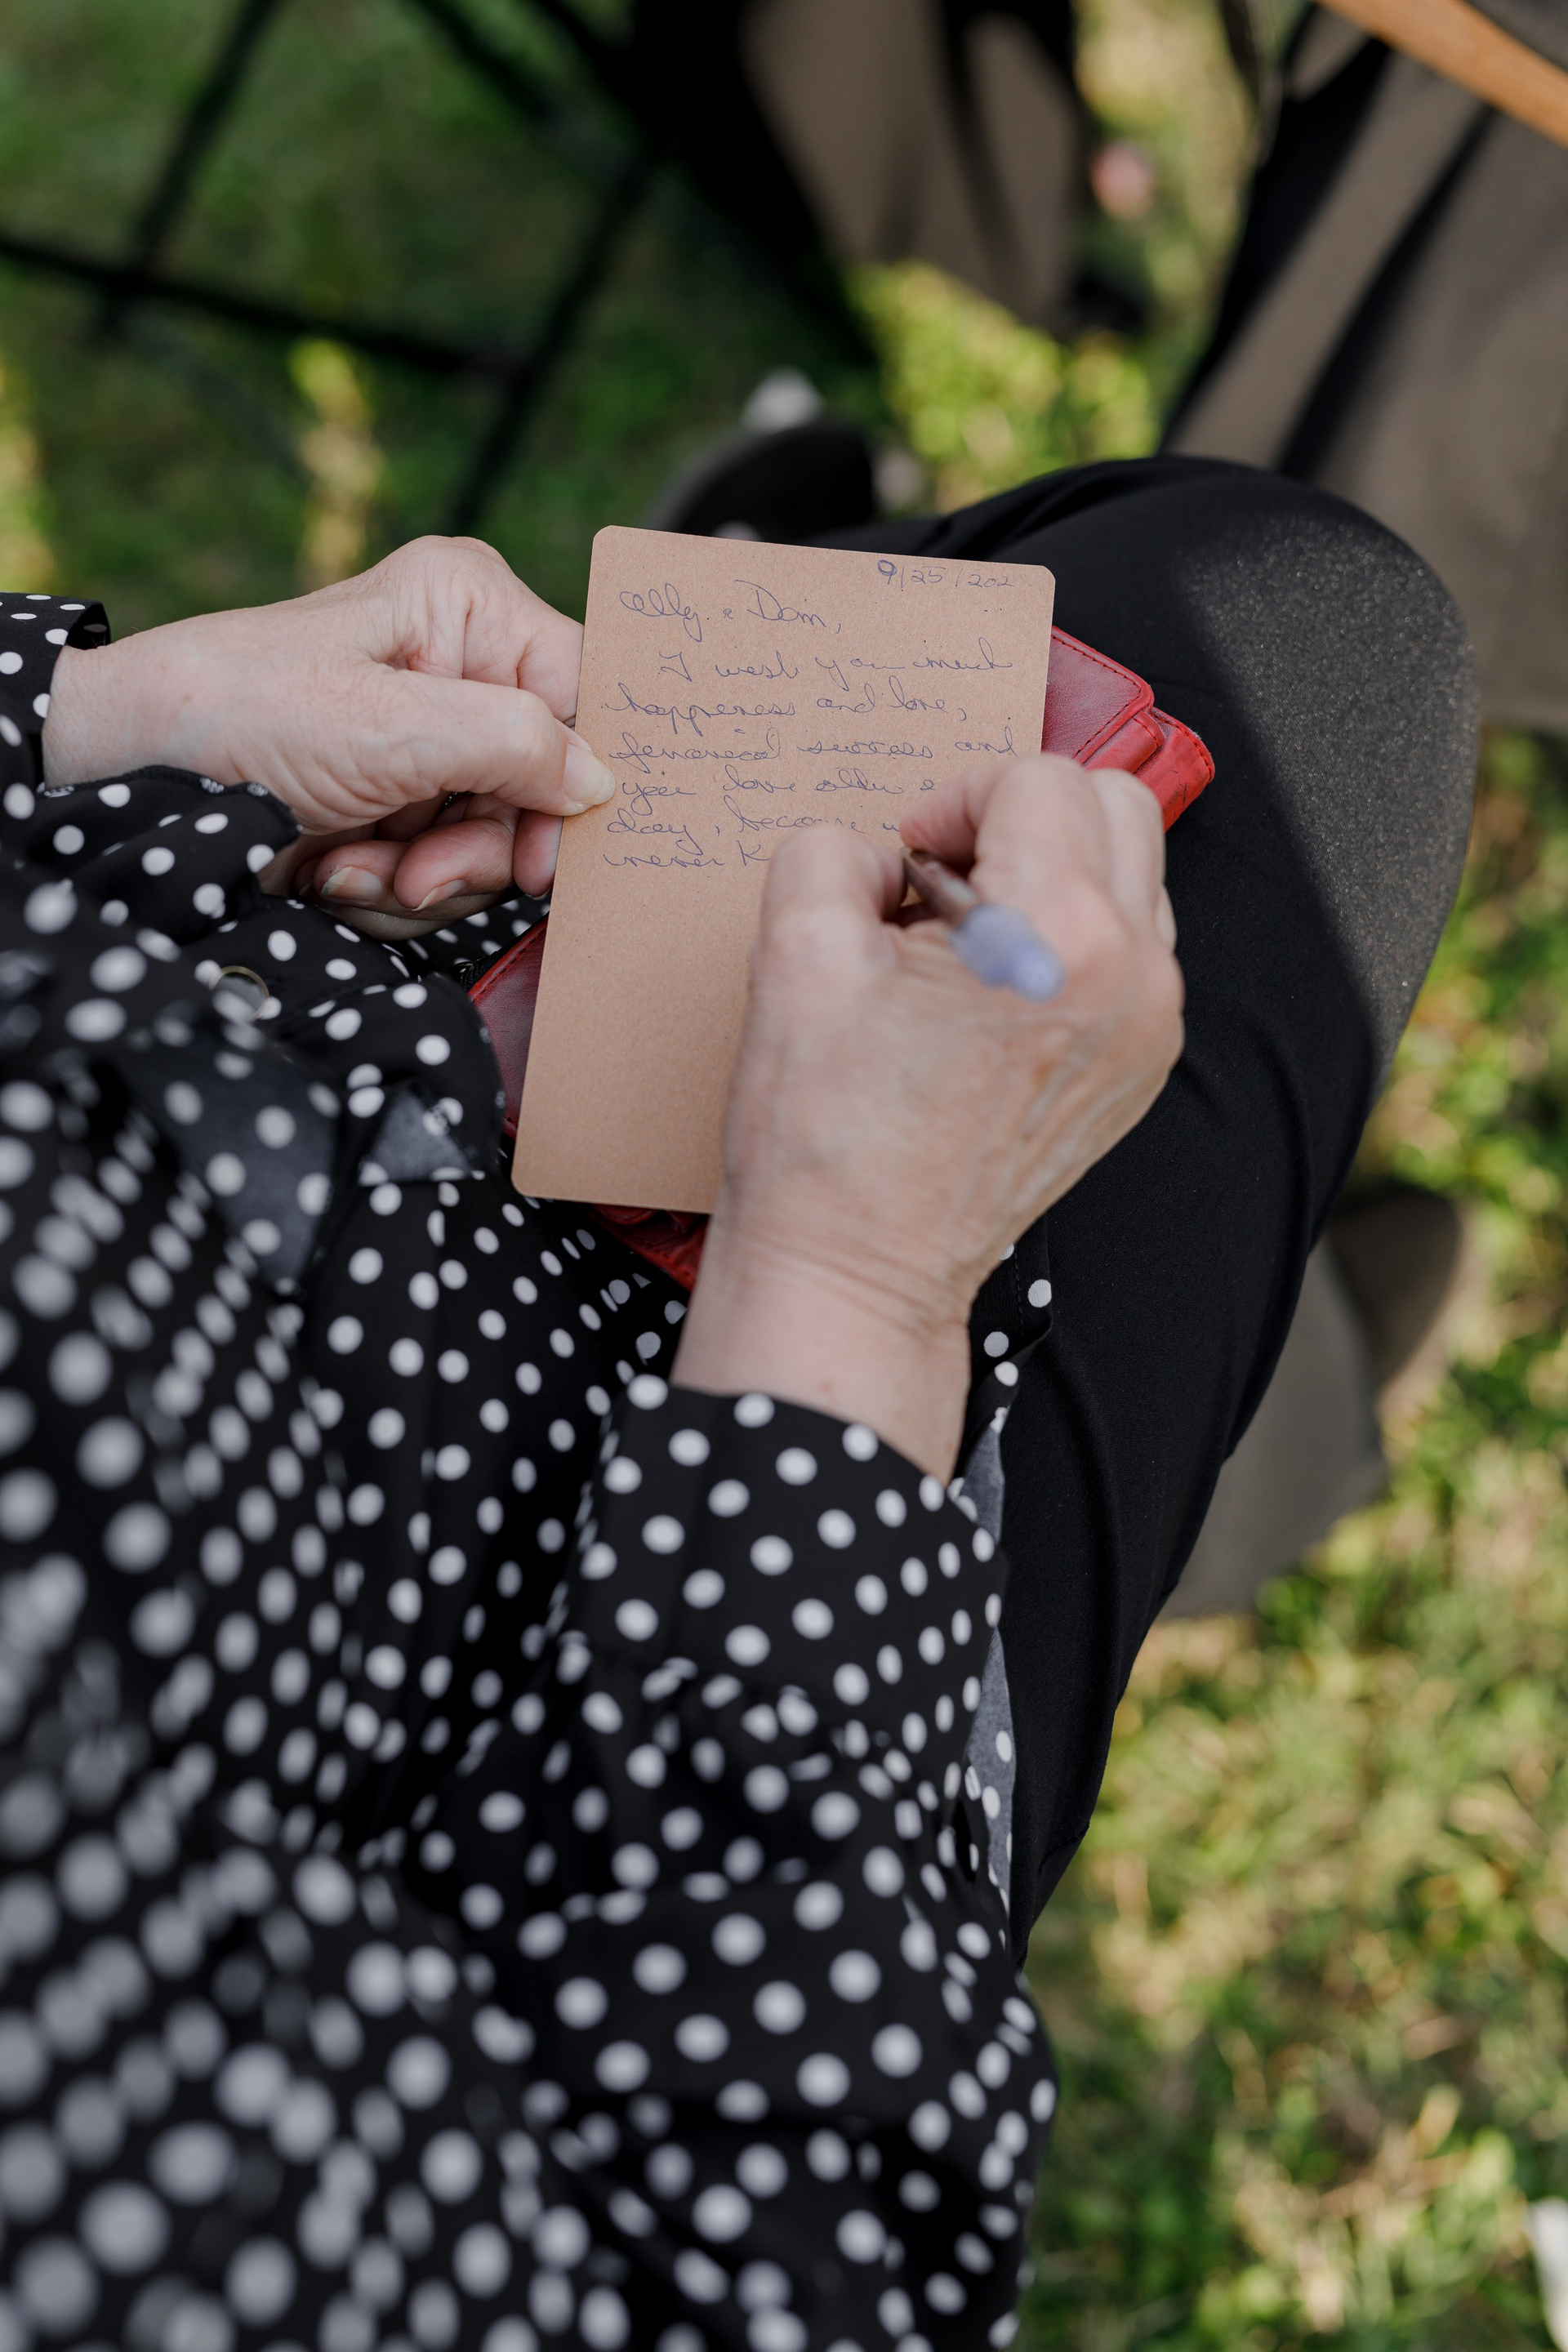 9/25/202
Ally & Dom,
I wish you much
happiness and love,
financial success and
you love
day, because
never K